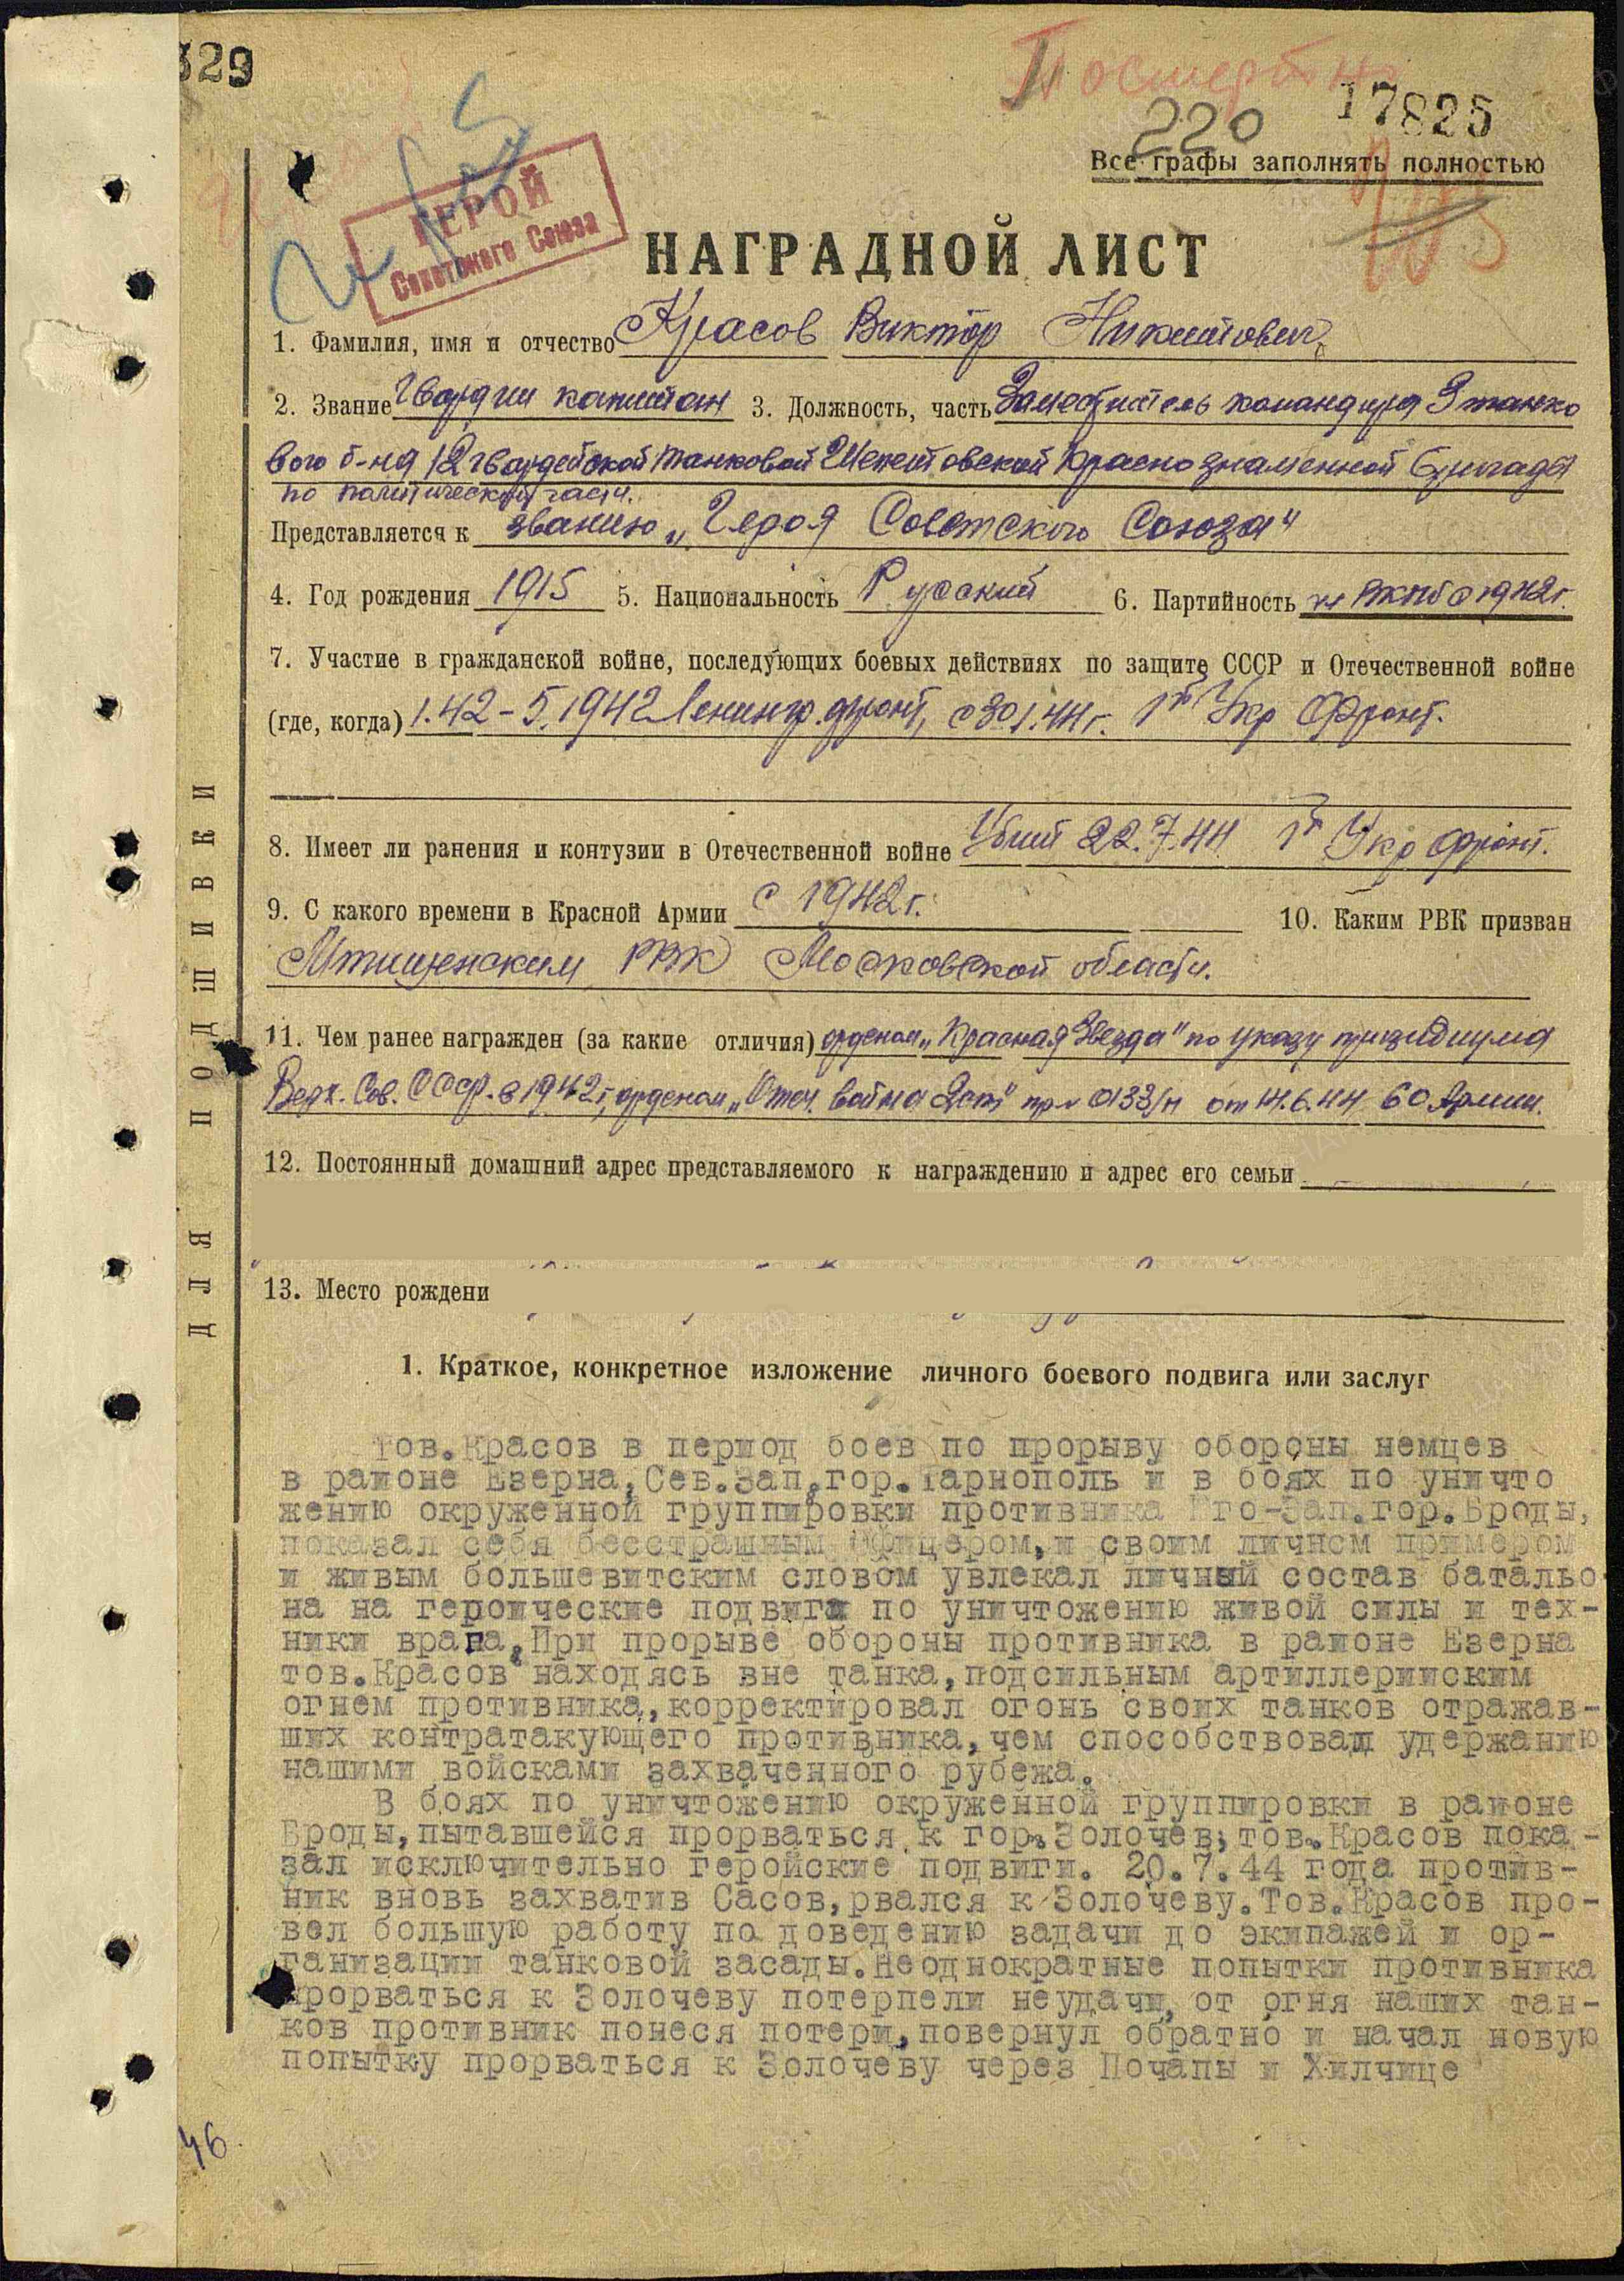 329
Посмертно
17825
220
Все графы заполнять полностью
ГЕРОЙ
Советского Союза
НАГРАДНОЙ ЛИСТ
1. Фамилия, имя и отчество Красов Виктор Никитович
2. Звание Гвардии капитан 3. Должность, часть Заместитель командира 3 танко
вого б-на 12 гвардейской танковой Шепетовской Краснознаменной бригады
по политической части.
Представляется к званию „Героя Советского Союза"
4. Год рождения 1915 5. Национальность Русский 6. Партийность чл ВКПб с 1942г.
7. Участие в гражданской войне, последующих боевых действиях по защите СССР и Отечественной войне
(где, когда) 1.42-5.1942 Ленингр. фронт, с 30 1.44г. 1й Укр Фронт.
8. Имеет ли ранения и контузии в Отечественной войне Убит 22.7.44 1й Укр фронт.
9. С какого времени в Красной Армии с 1942г. 10. Каким РВК призван
Мтищенским РВК Московской области.
11. Чем ранее награжден (за какие отличия) орденом „Красная Звезда" по указу призидиума
Верх. Сов. СССР. в 1942г, орденом „Отеч. война 2 ст" пр. 0133/н от 14.6.44 60 Армии.
12. Постоянный домашний адрес представляемого к награждению и адрес его семьи
13. Место рождени
1. Краткое, конкретное изложение личного боевого подвига или заслуг
Тов.Красов в период боев по прорыву обороны немцев
в районе Езерна,Сев.Зап.гор.Тарнополь и в боях по уничто
жению окруженной группировки противника Юго-Зап.гор.Броды,
показал себя бесстрашным Офицером,и своим личном примером
и живым большевитским словом увлекал личный состав батальо
на на героические подвиги по уничтожению живой силы и тех-
ники врага.При прорыве обороны противника в районе Езерна
тов.Красов находясь вне танка,подсильным артиллерийским
огнем противника,корректировал огонь своих танков отражав-
ших контратакующего противника,чем способствовал удержанию
нашими войсками захваченного рубежа.
В боях по уничтожению окруженной группировки в районе
Броды,пытавшейся прорваться к гор.Золочев,тов.Красов пока-
зал исключительно геройские подвиги. 20.7.44 года против-
ник вновь захватив Сасов,рвался к Золочеву.Тов.Красов про-
вел большую работу по доведению задачи до экипажей и ор-
ганизации танковой засады.Неоднократные попытки противника
прорваться к Золочеву потерпели неудачи, от огня наших тан-
ков противник понеся потери,повернул обратно и начал новую
попытку прорваться к Золочеву через Почапы и Хилчице
46
ДЛЯ ПОДШИВКИ